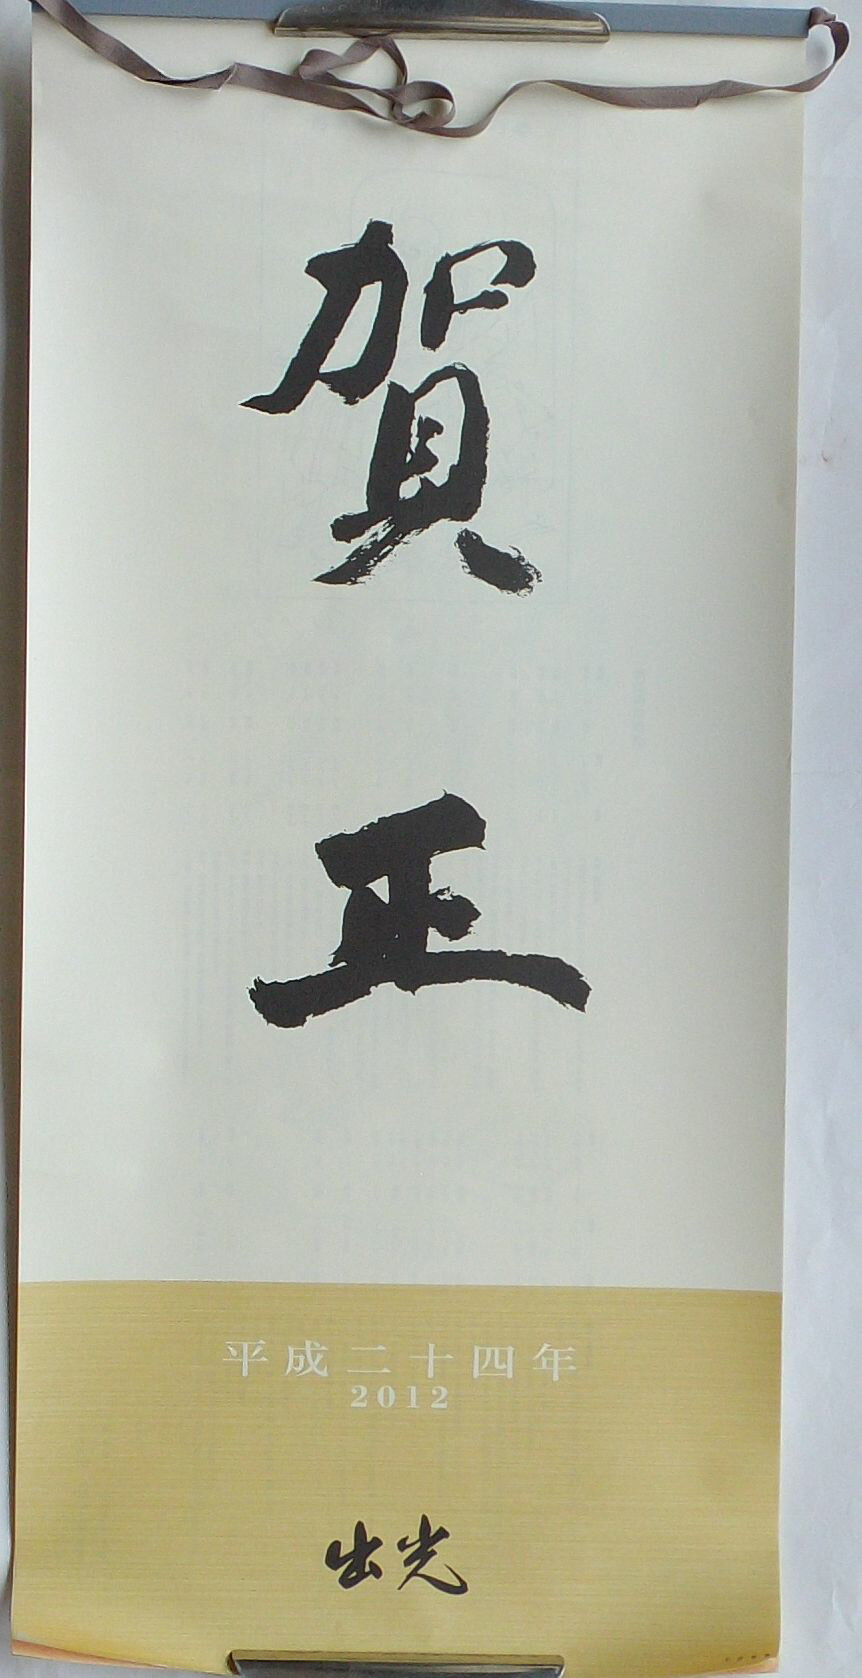 賀正
平成二十四年
2012
出光